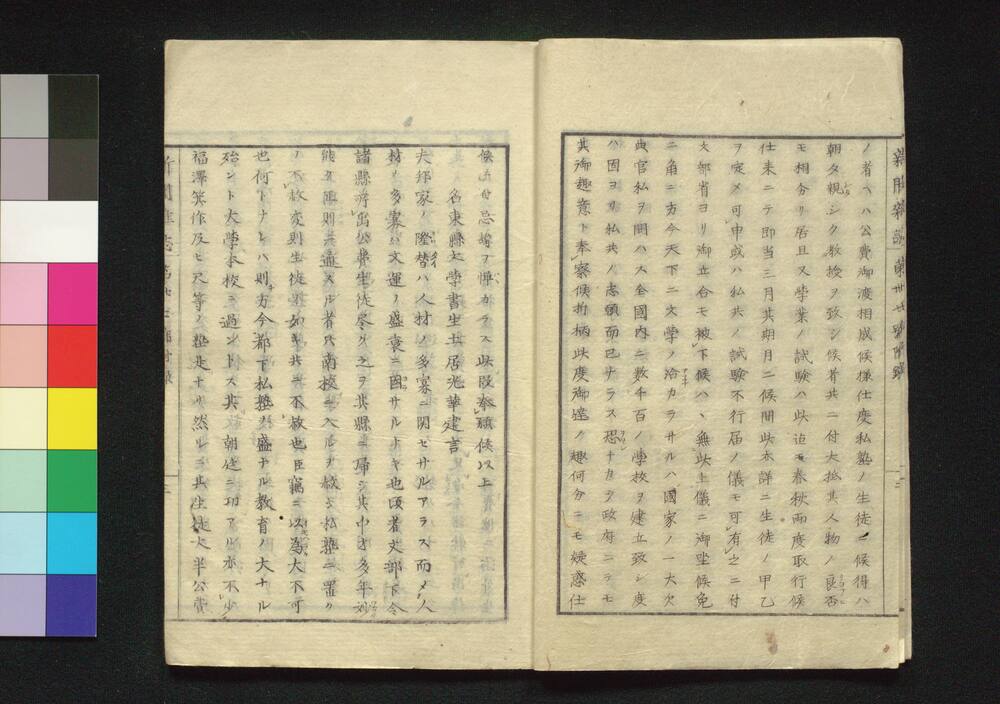 ノ者ヘハ公費御渡相成候様仕度私塾ノ生徒ニ候得ハ
朝夕親シク教授ヲ致シ候者共ニ付大抵其人物ノ良否
モ相分リ居且又学業ノ試験ハ此迄モ春秋両度取行候
仕来ニテ即当三月其期月ニ候間此末詳ニ生徒ノ甲乙
ヲ定メ可申或ハ私共ノ試験不行届ノ儀モ可有之ニ付
文部省ヨリ御立合モ被下候ハヽ無此上儀ニ御坐候兔
ニ角ニ方今天下ニ文学ノ洽カラサルハ國家ノ一大欠
典官私ヲ問ハス全國内ニ数千百ノ学校ヲ建立致シ度
ハ固ヨリ私共ノ志願而已ナラス恐ナカラ政府ニテモ
其御趣意ト奉察候折柄此度御達ノ趣何分ニモ疑惑仕
候五分忌諱ヲ憚カラス此段奉願候以上
名東縣文学書生土居光華建言
夫邦家ノ隆替ハ人材ノ多寡ニ関セサルアラス而メ人
材ノ多寡ハ文運ノ盛衰ニ因サルナキ也頃者文部下令
諸縣貢出公費生徒尽ク之ヲ其縣ニ帰シ其中才多年
能正則共通スル者只南校ニ入ルヲ校シ私塾ニ置ク
ノ不敢変則生徒如キ共ニ不教也臣竊ニ以為大不可
也何トナレハ則方今都下私塾盛ナル教育ノ大ナル
殆ント大学本校ニ過ントス其朝廷ニ功アル亦不少
福澤箕作及ヒ尺等ノ塾是ナリ然ルニ其生徒大半公費